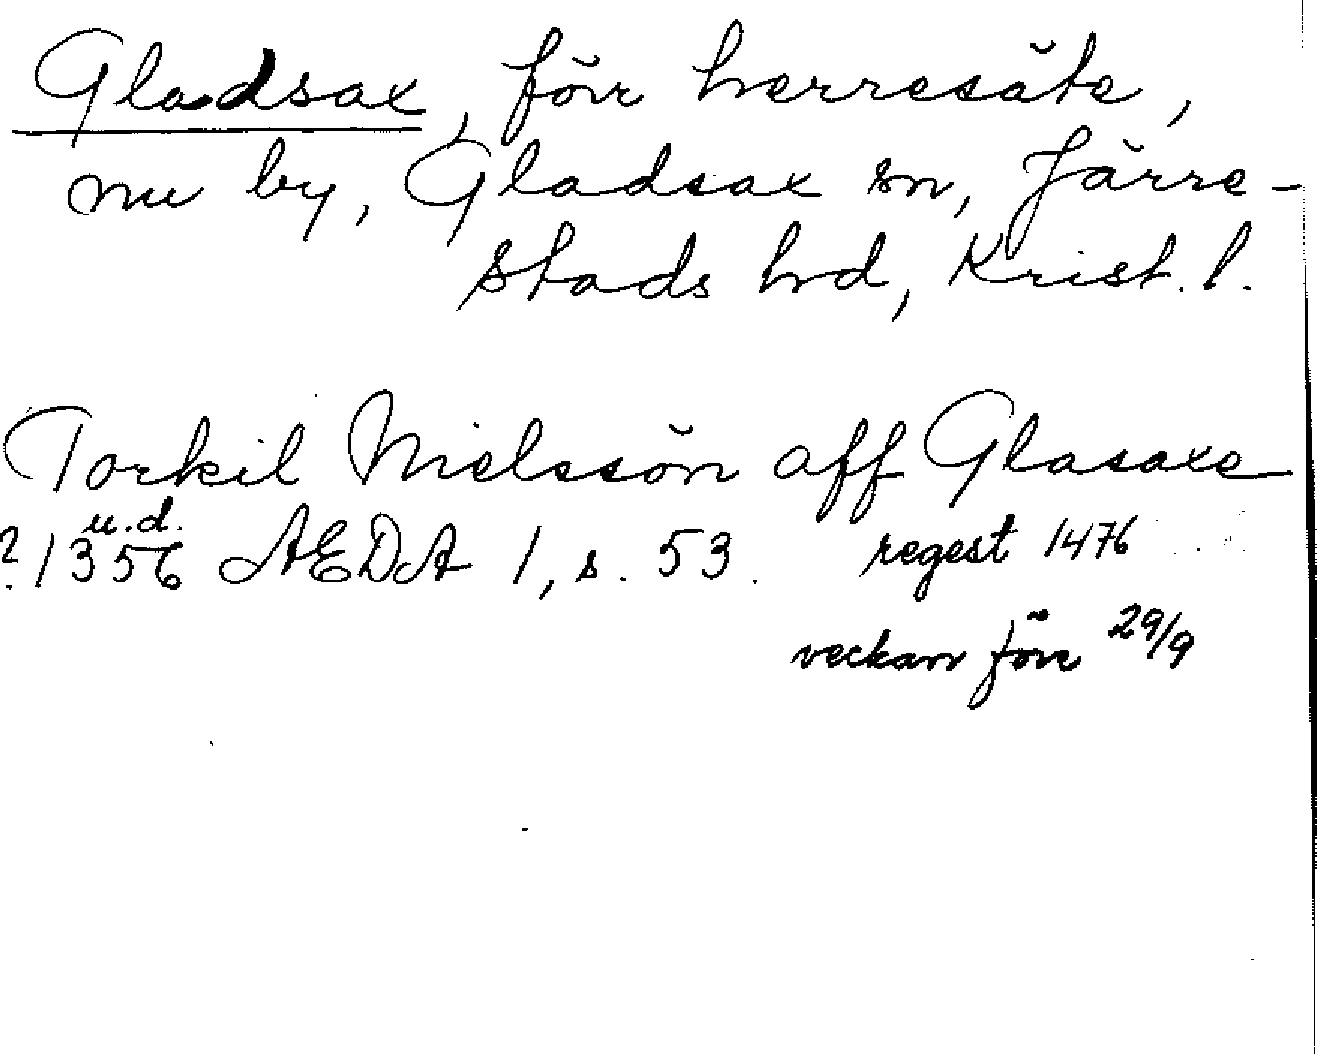 Gladsax, förr herresäte,
nu by, Gladsax sn, Järre-
stads hd, Krist. l.
Torkil Nielssön aff Glasaxe
u.d.
? 1356 AEDA 1, s. 53. regest 1476
veckan före 29/9